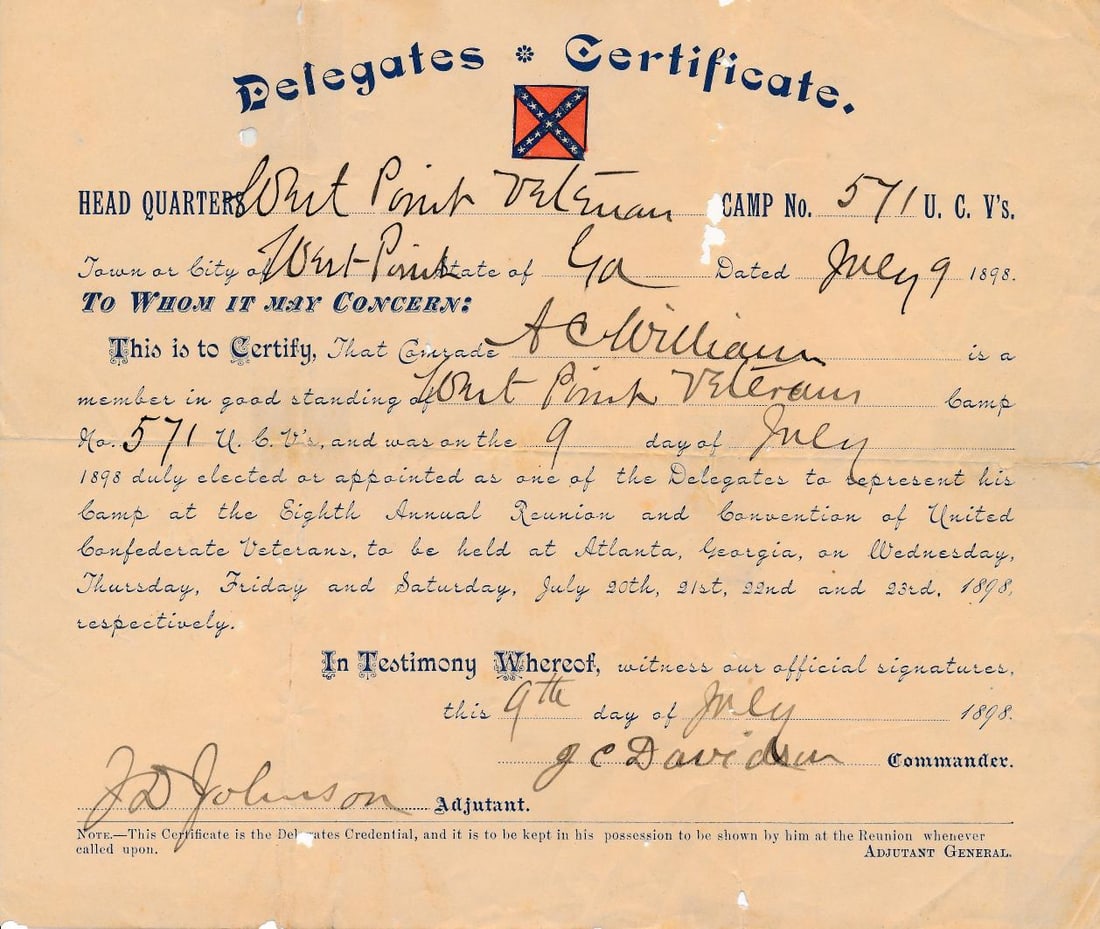 Delegates * Certificate.
HEAD QUARTERS West Point Veteran CAMP No. 571 U. C. V's.
Town or City of West Point State of Ga Dated July 9 1898.
TO WHOM IT MAY CONCERN:
This is to Certify, That Comrade A C William is a
member in good standing of West Point Veterans Camp
No. 571 U. C. V's, and was on the 9 day of July
1898 duly elected or appointed as one of the Delegates to represent his
Camp at the Eighth Annual Reunion and Convention of United
Confederate Veterans, to be held at Atlanta, Georgia, on Wednesday,
Thursday, Friday and Saturday, July 20th, 21st, 22nd and 23rd, 1898,
respectively.
In Testimony Whereof, witness our official signatures,
this 9th day of July 1898.
J C Davidson Commander.
J D Johnson Adjutant.
NOTE.—This Certificate is the Delegates Credential, and it is to be kept in his possession to be shown by him at the Reunion whenever
called upon. ADJUTANT GENERAL.